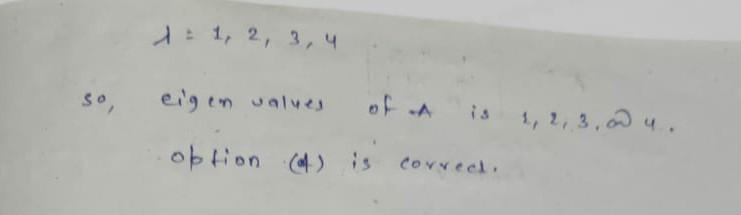 λ = 1, 2, 3, 4
so, eigen values of A is 1, 2, 3, 4.
option (d) is correct.